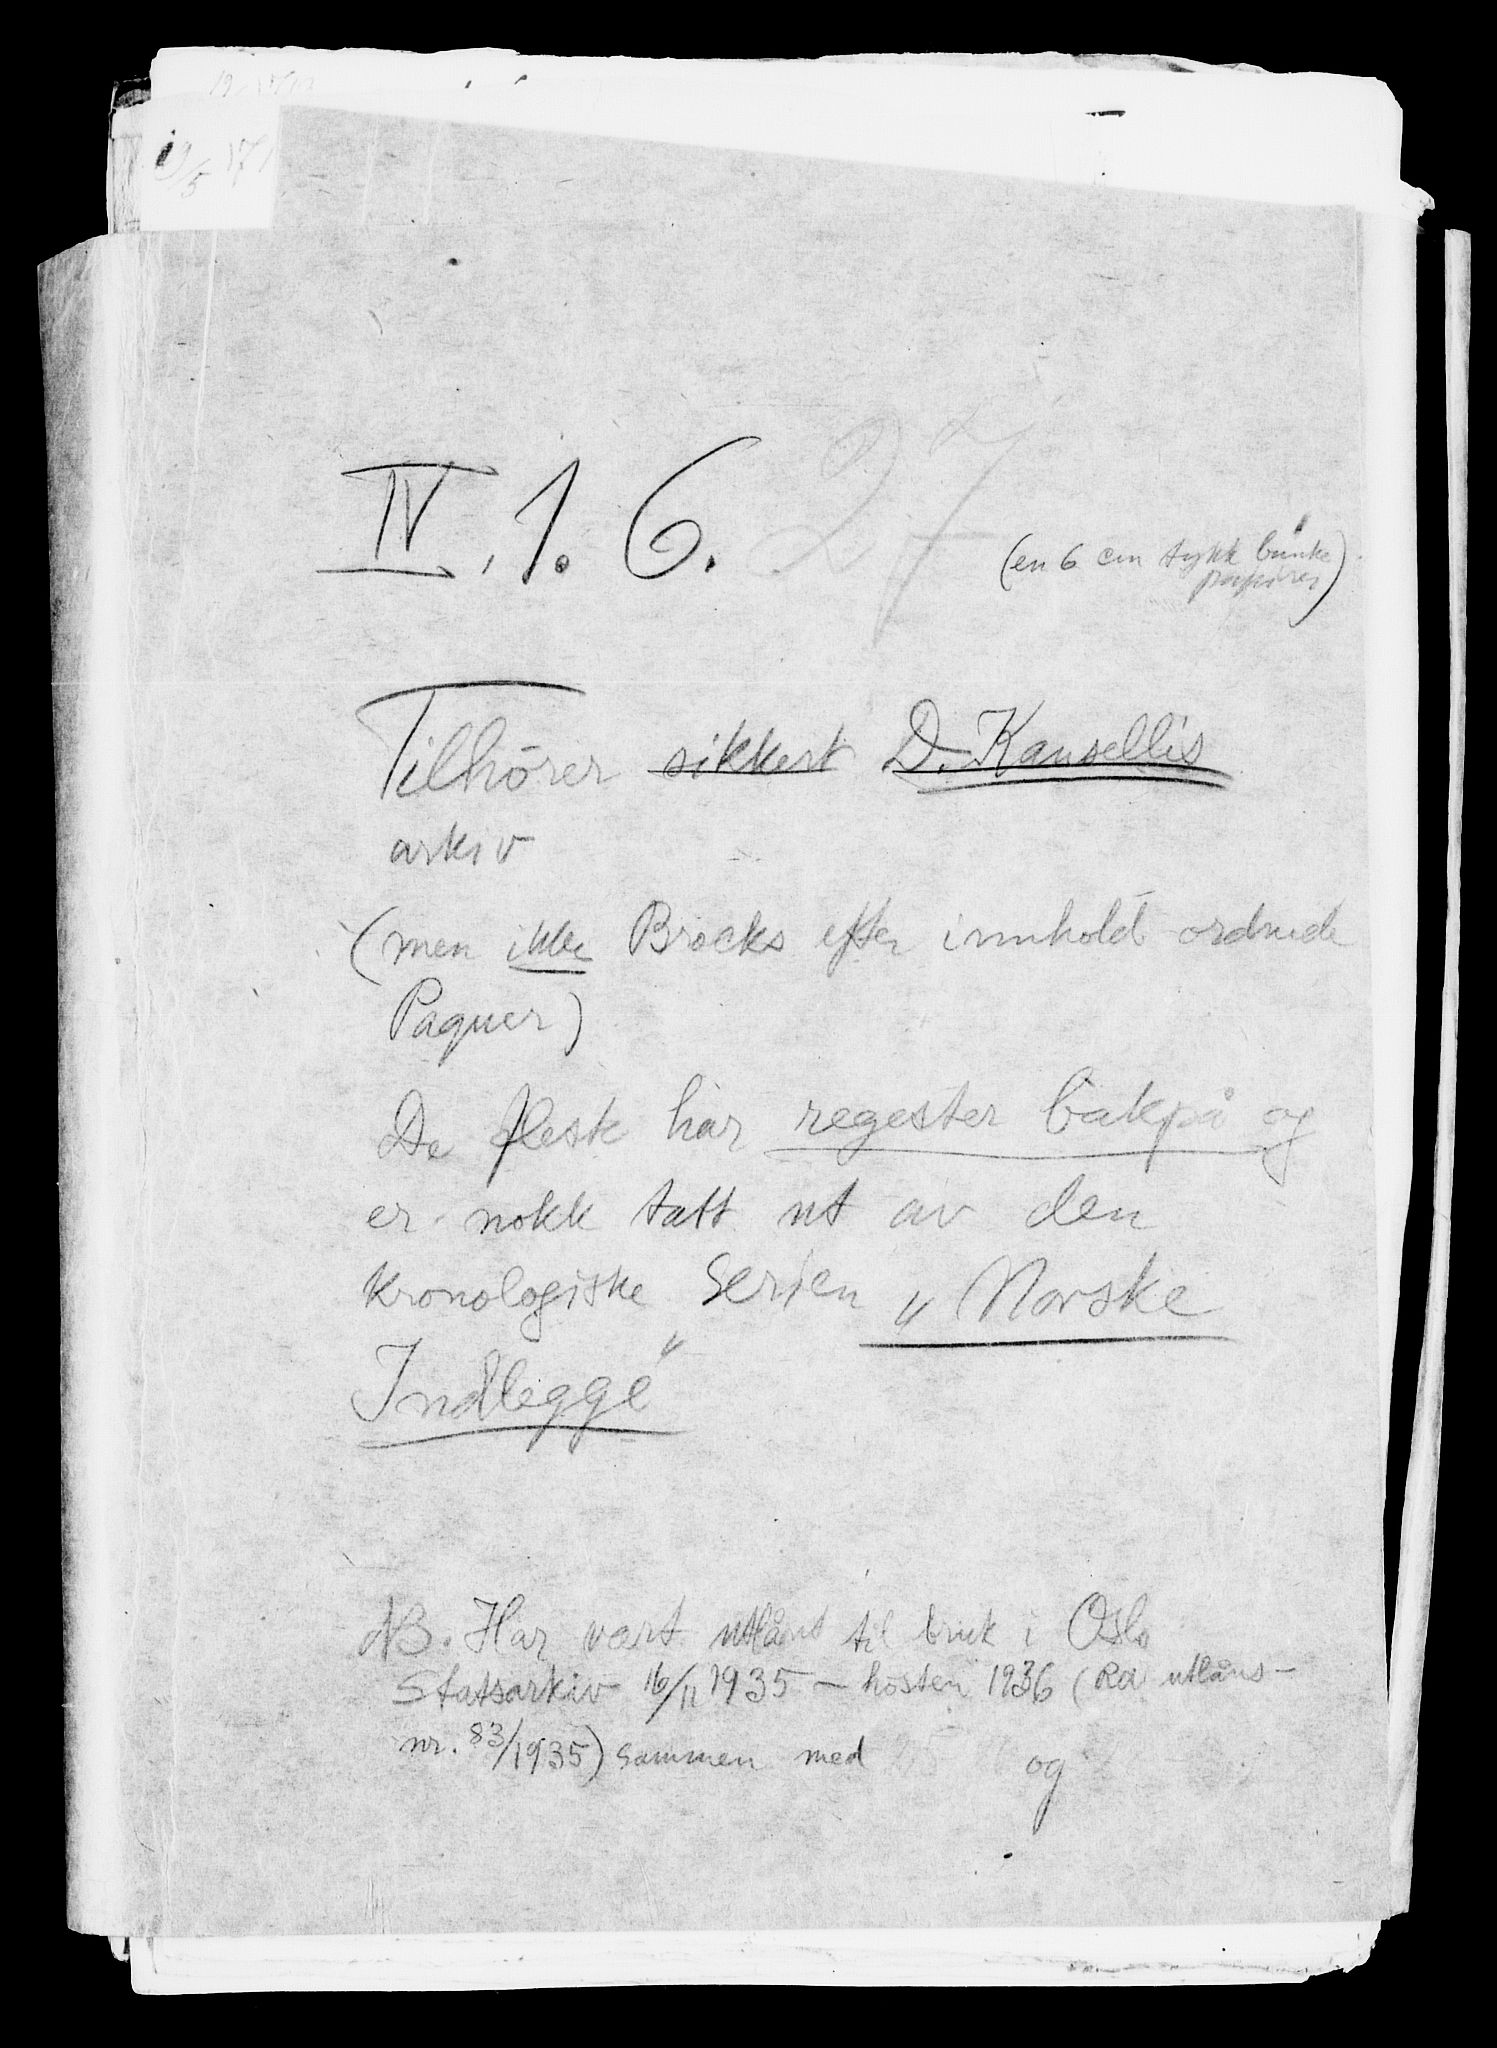 IV. 1. 6. 27
(en 6 cm tykk bunke
papirer)
Tilhörer sikkert D. Kansellis
arkiv
(men ikke Brocks efter innhold ordnede
Paquer)
De fleste har regester bakpå og
er nokk tatt ut av den
kronologiske serien „Norske
Indlegge"
NB. Har vært utlånt til bruk i Oslo
Statsarkiv 16/11 1935 – høsten 1936 (RA utlåns-
nr. 83/1935) sammen med og